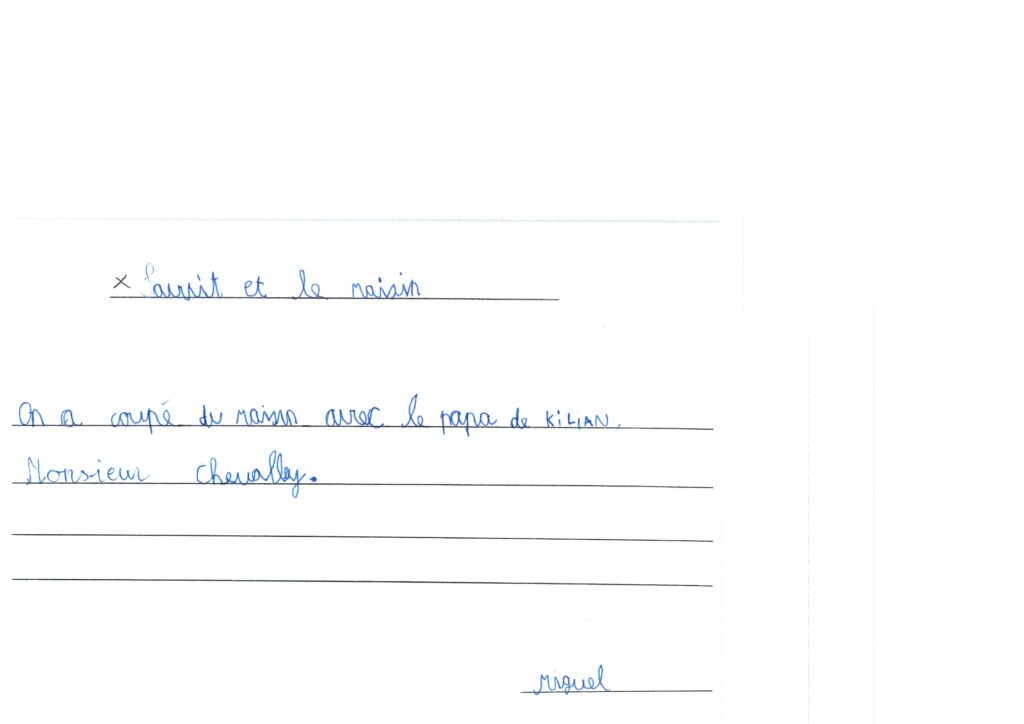 × Sauvit et le raisin
On a coupé du raisin avec le papa de KiLIAN.
Monsieur Chevalley.
Miguel